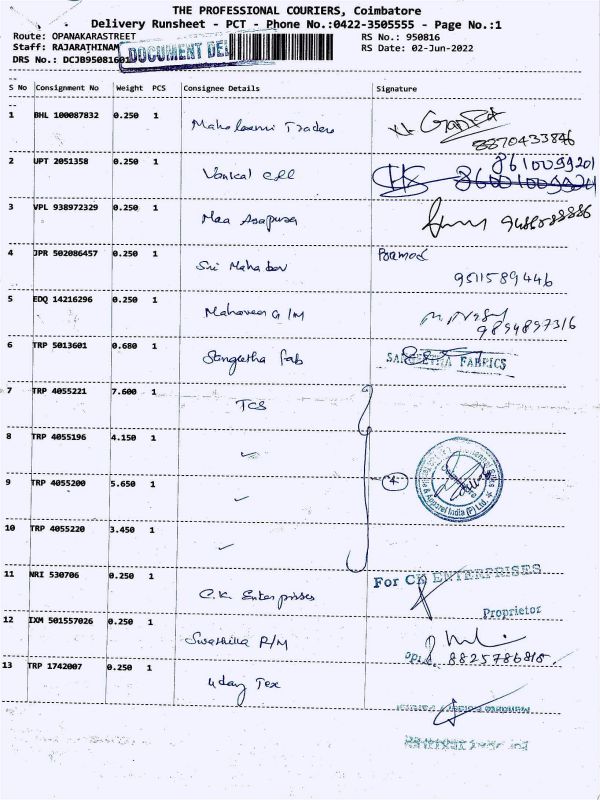 THE PROFESSIONAL COURIERS, Coimbatore
Delivery Runsheet - PCT - Phone No.:0422-3505555 - Page No.:1
Route: OPANAKARASTREET RS No.: 950816
Staff: RAJARATHINAM RS Date: 02-Jun-2022
DOCUMENT DEL
DRS No.: DCJB95081601
S No Consignment No Weight PCS Consignee Details Signature
1 BHL 100087832 0.250 1 Mahalaxmi Traders
8870433846
2 UPT 2051358 0.250 1 8610099201
3 VPL 938972329 0.250 1 Maa Asapura
4 JPR 502086457 0.250 1 Sri Mahadev Pramod
9511589446
5 EDQ 14216296 0.250 1 Mahaveer G/M
9894897316
6 TRP 5013601 0.680 1 Sangeetha fab SANGEETHA FABRICS
7 TRP 4055221 7.600 1 TCS
8 TRP 4055196 4.150 1
9 TRP 4055200 5.650 1 4
& Apparel India (P) Ltd.
10 TRP 4055220 3.450 1
11 NRI 530706 0.250 1 C.K. Enterprises For CK ENTERPRISES
Proprietor
12 IXM 501557026 0.250 1 Swasthika R/M
8825786815.
13 TRP 1742007 0.250 1 Uday Tex